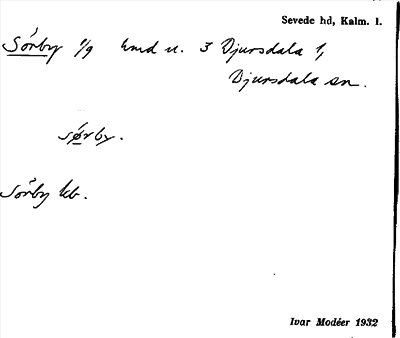 Sevede hd, Kalm. l.
Sörby 1/9 und u. 3 Djursdala 1,
Djursdala sn.
sǿrby.
Sörby kb.
Ivar Modéer 1932